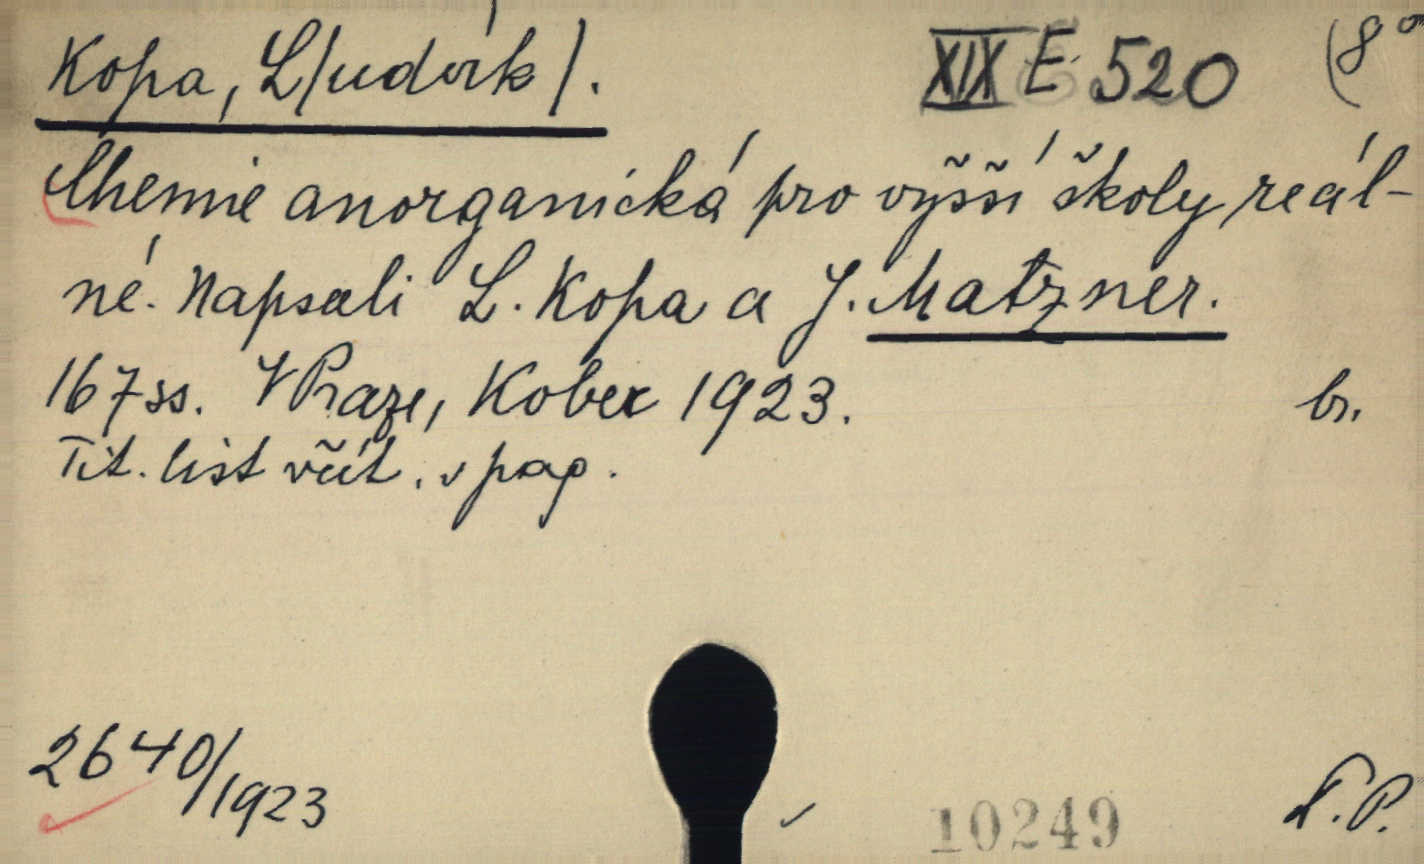 Kopa, L/udvík/. XIX E 520 (8°
Chemie anorganická pro vyšší školy reál-
né. Napsali L. Kopa a J. Matzner.
167 ss. V Praze, Kober 1923. br.
Tit. list včít. v pap.
2640/1923
10249